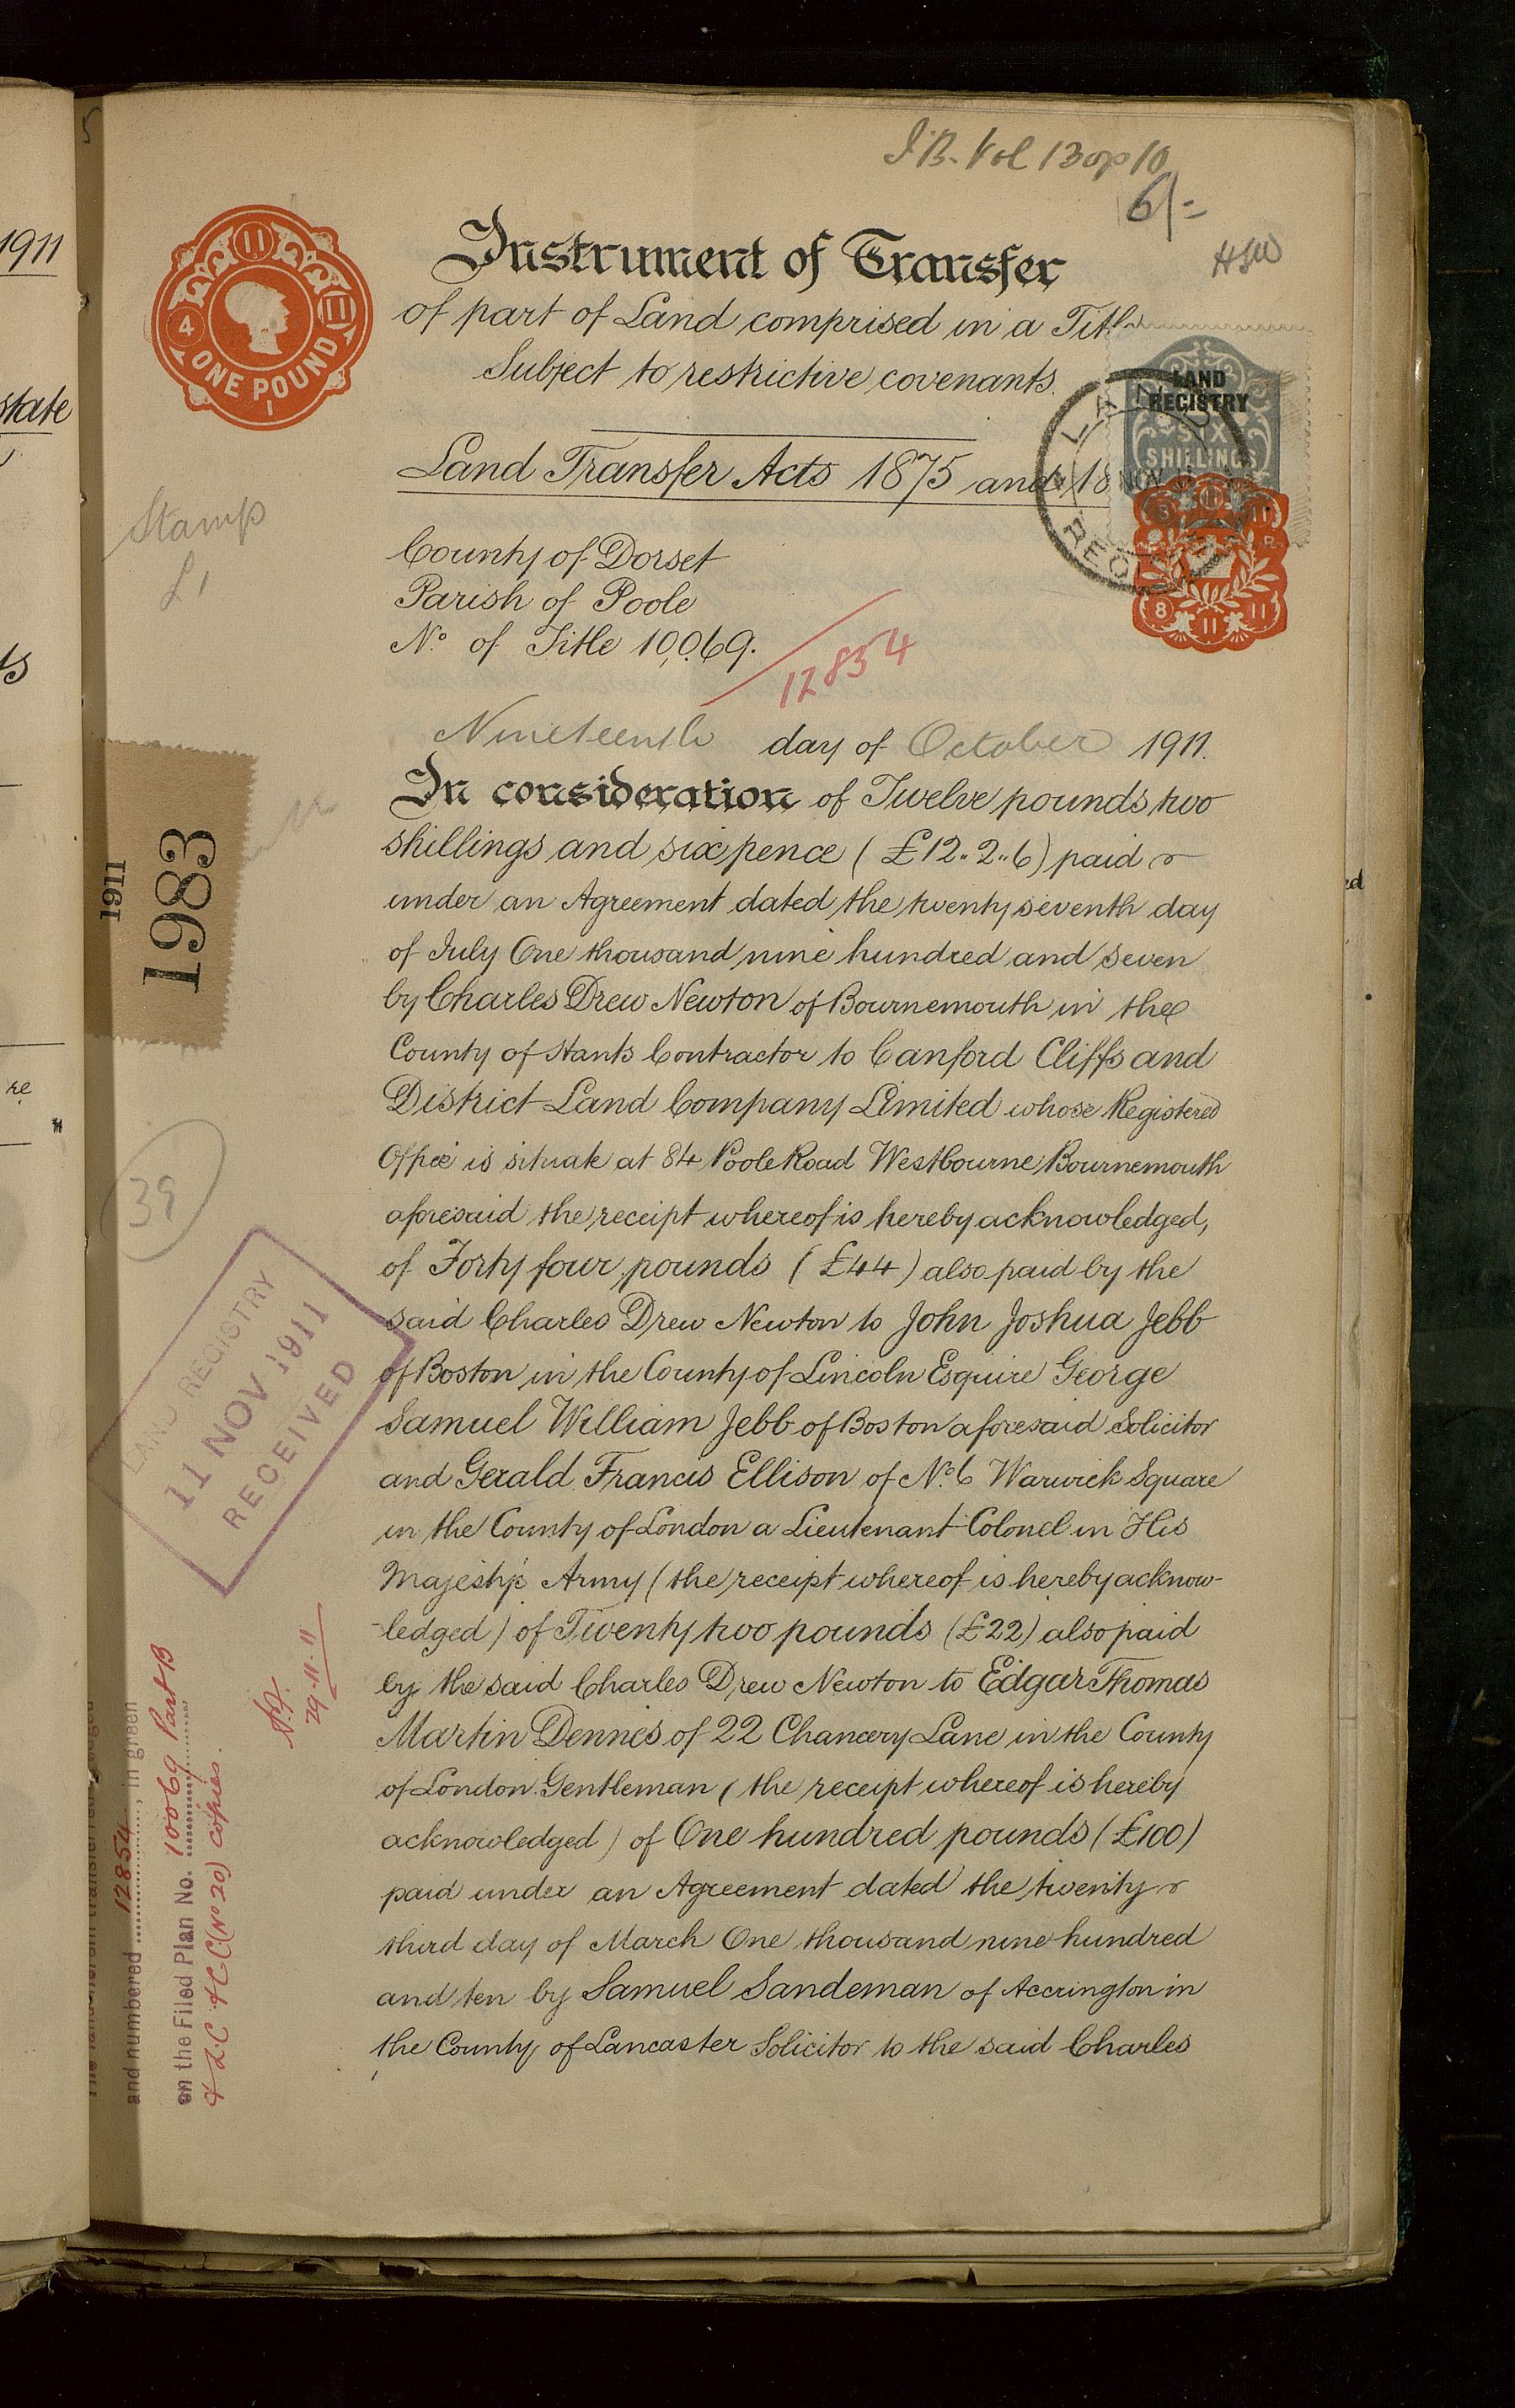 1911
state
ts
re
5
I.B. Vol 13 op 10
6/-
HSW
Instrument of Transfer
of part of Land comprised in a Title
Subject to restrictive covenants.
Land Transfer Acts 1875 and 18
LAND
REGISTRY
SIX
SHILLINGS
11
4
11
ONE POUND
1
8
11
11
Stamp
£1
County of Dorset
Parish of Poole
No. of Title 10,069.
12854
Nineteenth day of October 1911.
In consideration of Twelve pounds two
shillings and six pence (£12..2..6) paid
under an Agreement dated the twenty seventh day
of July One thousand nine hundred and seven
by Charles Drew Newton of Bournemouth in the
County of Hants Contractor to Canford Cliffs and
District Land Company Limited whose Registered
Office is situate at 84 Poole Road Westbourne Bournemouth
aforesaid the receipt whereof is hereby acknowledged,
of Forty four pounds (£44) also paid by the
said Charles Drew Newton to John Joshua Jebb
of Boston in the County of Lincoln Esquire George
Samuel William Jebb of Boston aforesaid Solicitor
and Gerald Francis Ellison of No. 6 Warwick Square
in the County of London a Lieutenant-Colonel in His
Majesty's Army (the receipt whereof is hereby acknow-
-ledged) of Twenty two pounds (£22) also paid
by the said Charles Drew Newton to Edgar Thomas
Martin Dennes of 22 Chancery Lane in the County
of London Gentleman (the receipt whereof is hereby
acknowledged) of One hundred pounds (£100)
paid under an Agreement dated the twenty
third day of March One thousand nine hundred
and ten by Samuel Sandeman of Accrington in
the County of Lancaster Solicitor to the said Charles
1911
1983
39
LAND REGISTRY
11 NOV 1911
RECEIVED
29.11.11
and numbered 12854, in green
on the Filed Plan No. 10069 Part B
& L.C. & C.C. (No 20) copies.